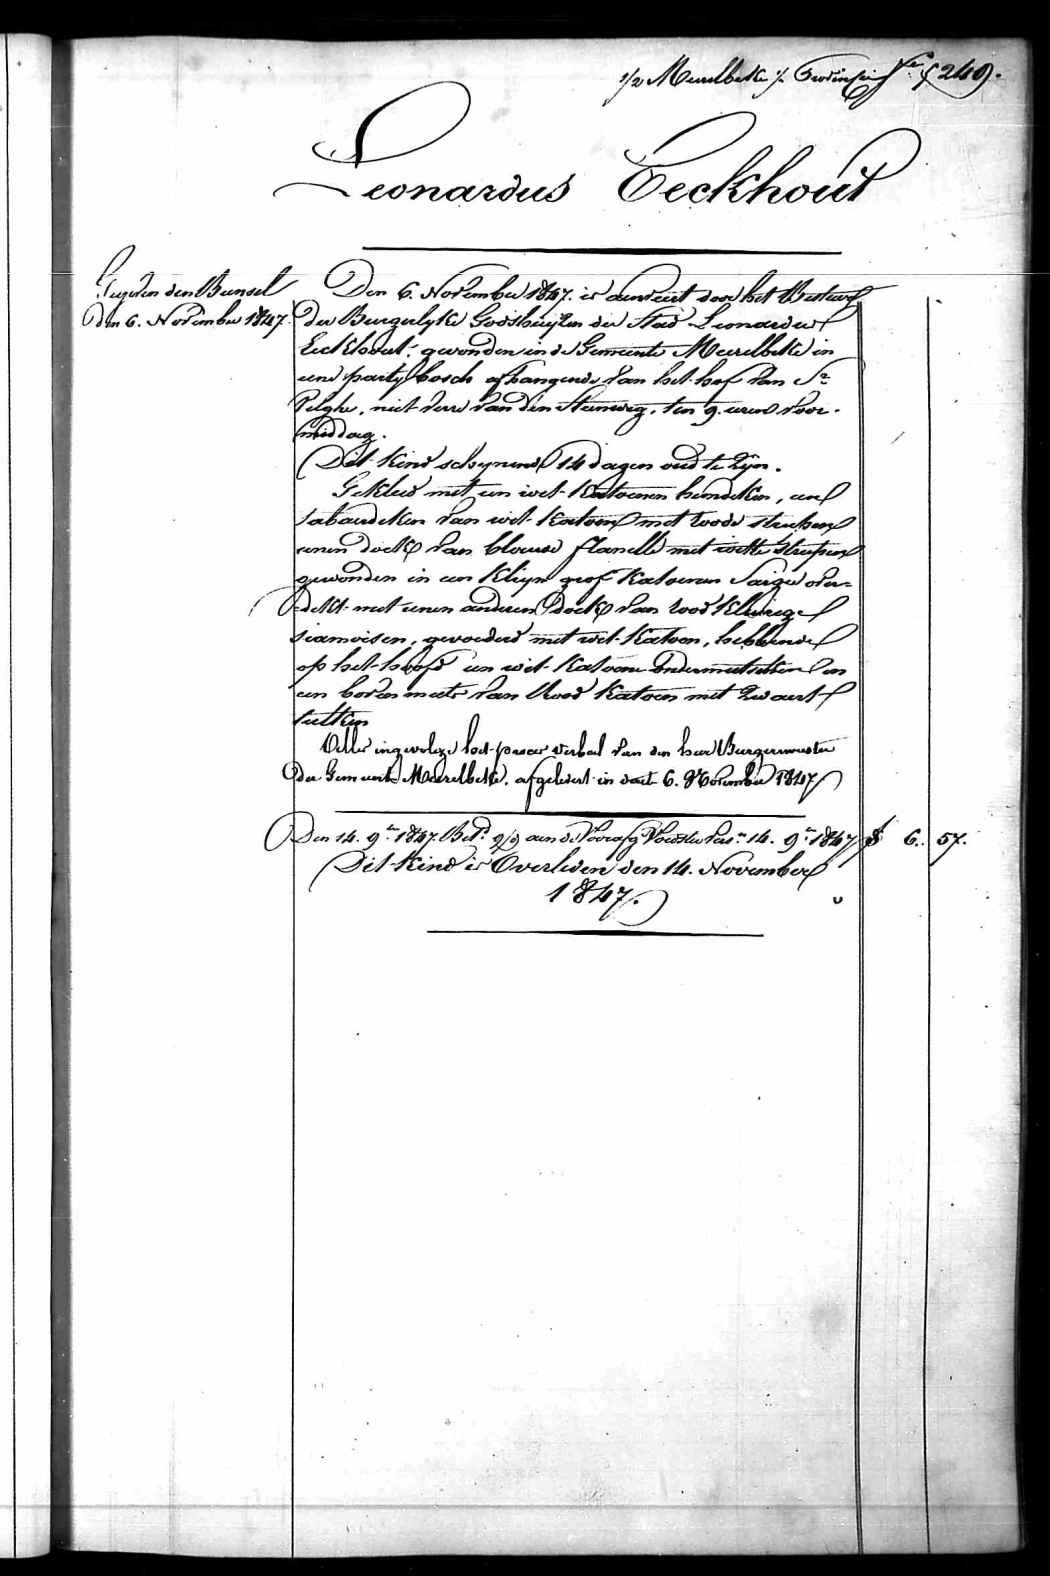 1/2 Meirelbeke % Provincie f° 249.
Leonardus Eeckhout
Gegeven den Bunsel
den 6. November 1847.
Den 6. November 1847. is aenveirt door het Bestuer
der Burgerlyke Godshuijzen der stad Leonardus
Eeckhout: gevonden in de Gemeente Meirelbeke in
eene partij bosch afhangende van het hof van Sr
niet verre van den steenweg, ten 9. uren voor-
middag.
Dit kind schynende 14 dagen oud te zijn.
Gekleed met een wit katoenen hemdeken, een
tabaerdeken van wit katoen met roode streepen
eenen doek van blauwe flanelle met witte streepen
gewonden in een kleyn grof katoenen Sargie over-
dekt met eenen anderen doek van rood kleurige
siamoisen, gevoederd met wit katoen, hebbende
op het hoofd een wit katoene ondermutseken en
een boven mutse van Rood katoen met zwaert
tulleken
Alles ingevolge het proces verbael van den heer Burgermeester
der Gemeente Meirelbeke, afgelevert in date 6. November 1847
Den 14. 9er 1847. Betd aen de Voedster 14. 9er 1847 f 6. 57.
Dit Kind is Overleden den 14. November
1847.